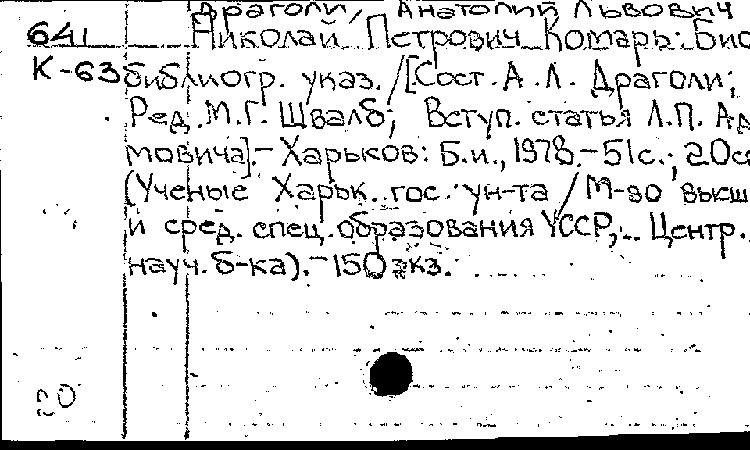 Драголи, Анатолий Львович
641 Николай Петрович Комарь: Био
К-63 библиогр. указ. /[Сост. А.Л. Драголи;
Ред. М.Г. Швалб; Вступ. статья Л.П. Ад
мовича].- Харьков: Б.и., 1978.- 51с.; 20с
(Ученые Харьк. гос. ун-та / М-во высш
и сред. спец. образования УССР,.. Центр.
науч. б-ка).- 150 экз.